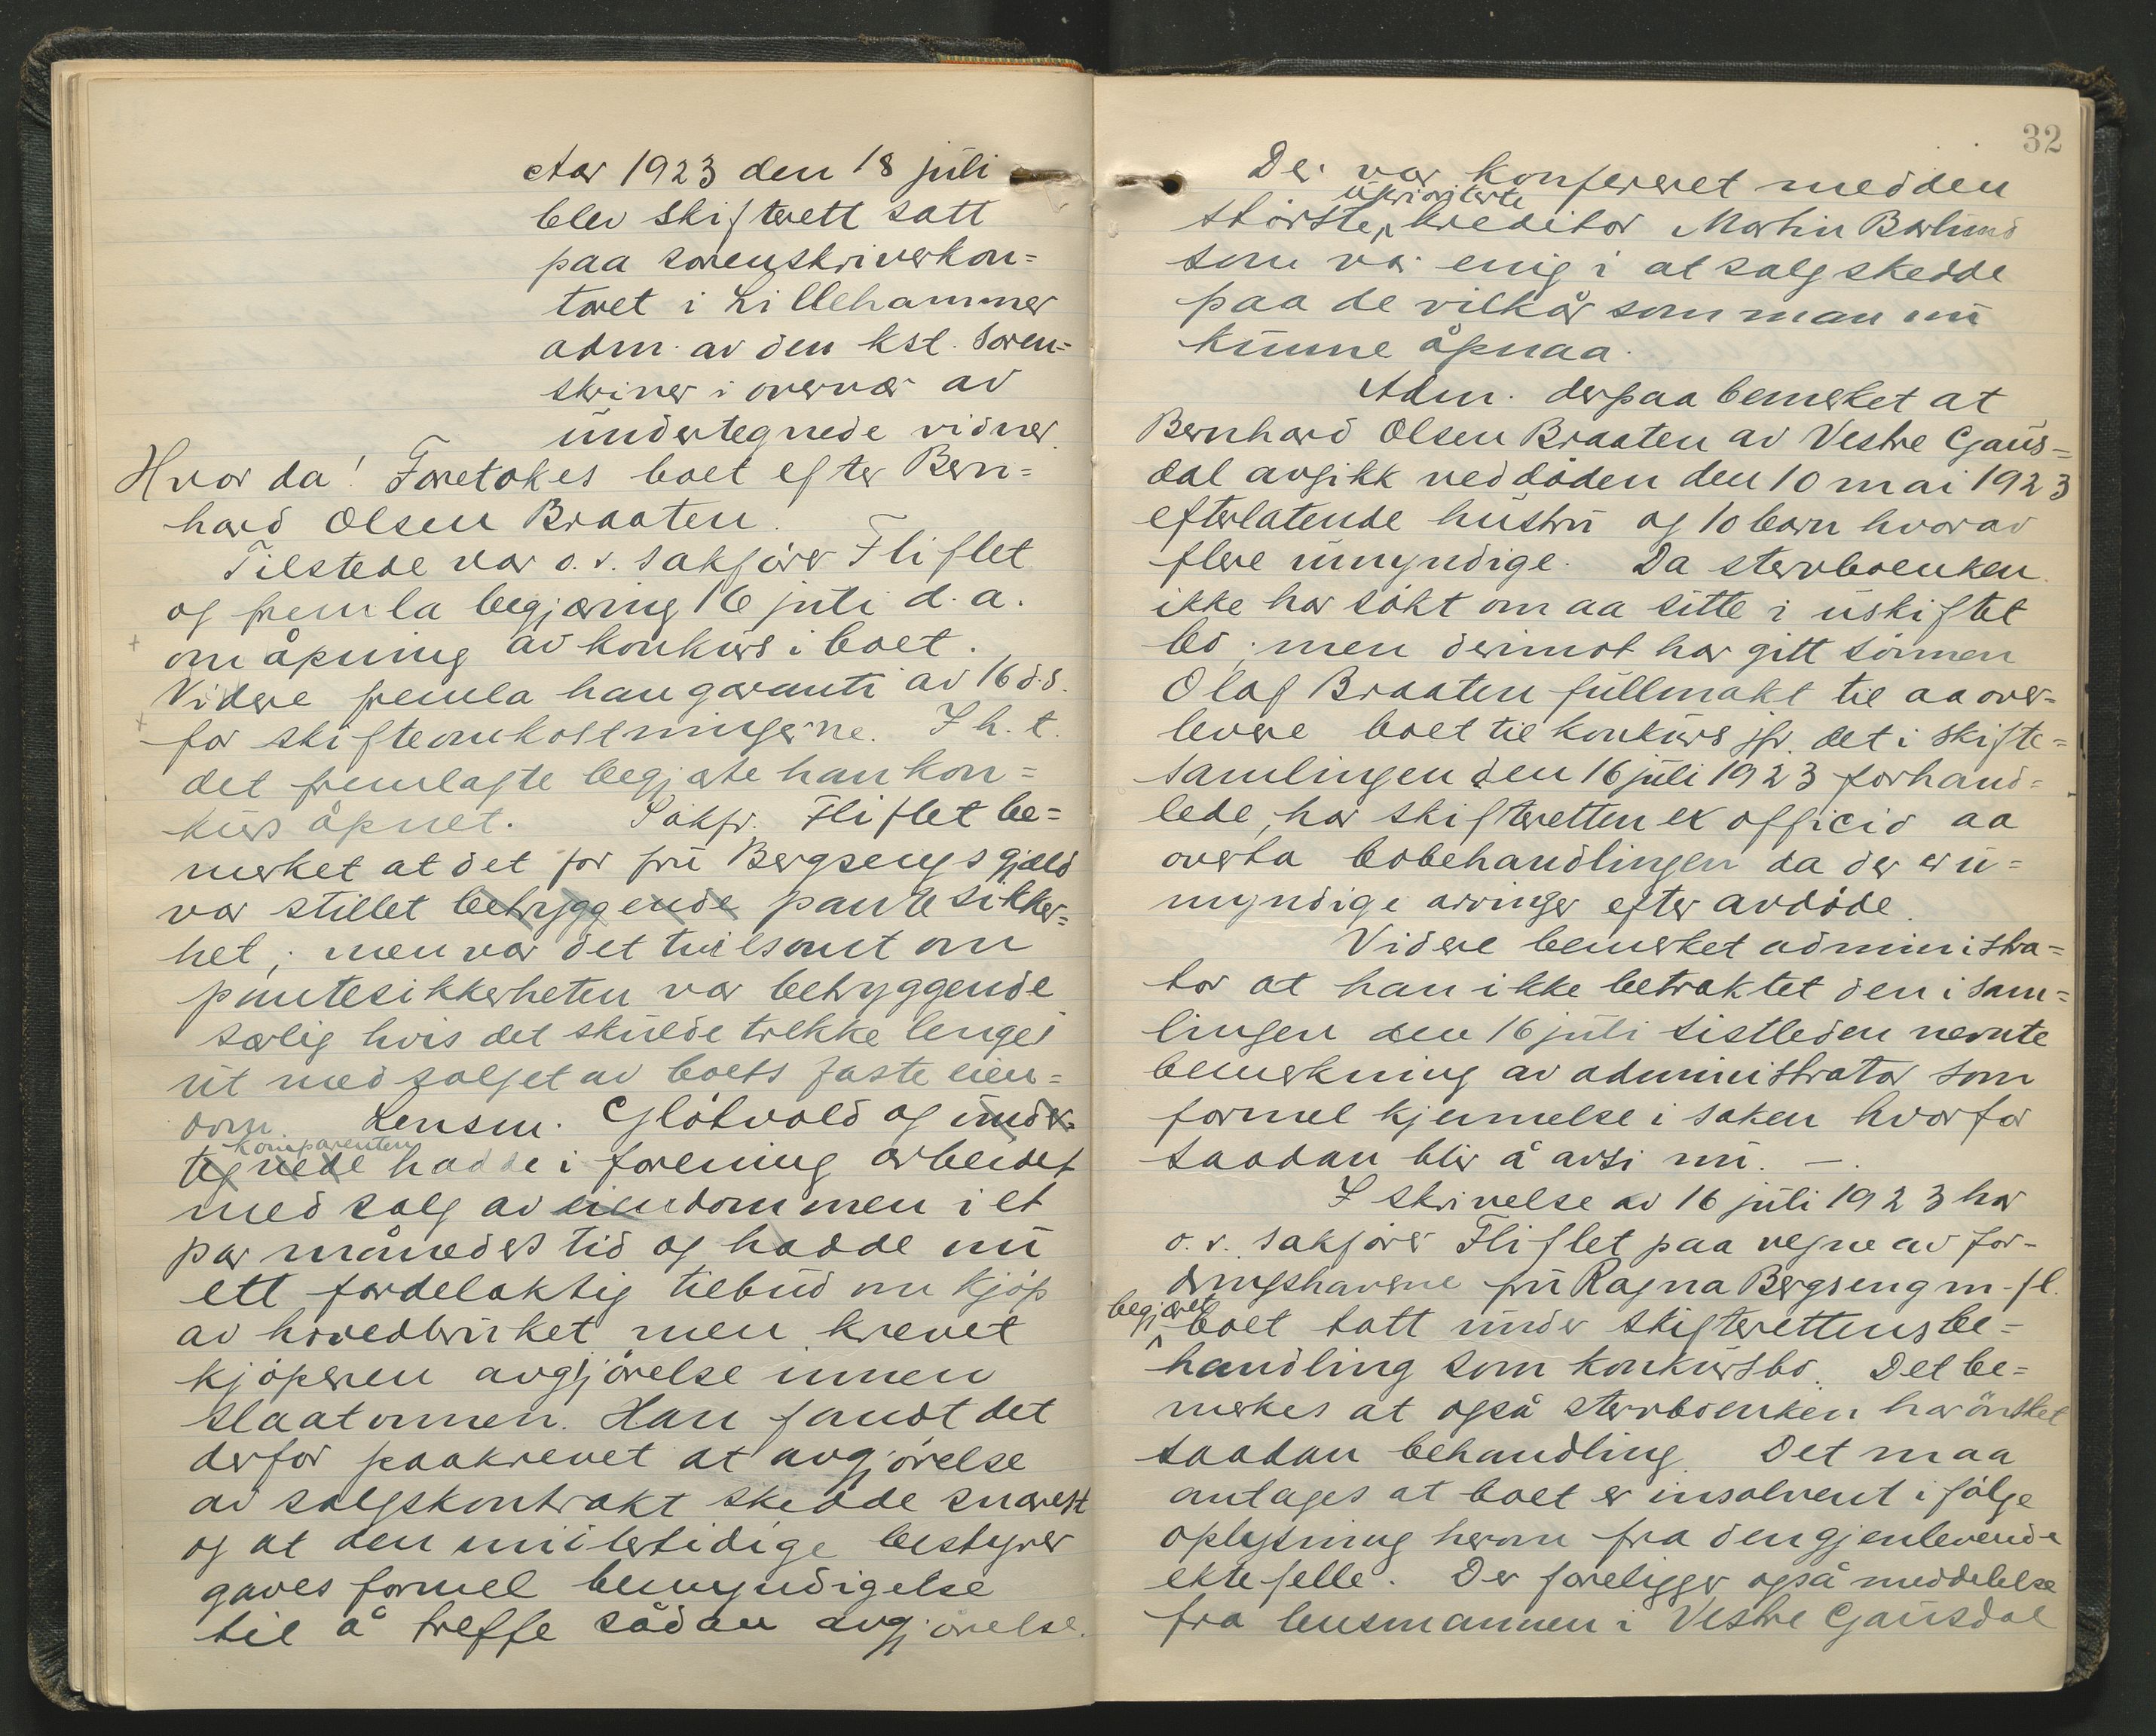 Aar 1923 den 18 juli
blev skifterett satt
paa sorenskriverkon=
toret i Lillehammer
adm. av den kst. soren=
skriver i overvær av
undertegnede vidner.
Hvor da! Foretokes boet efter Bern=
hard Olsen Braaten.
Tilstede var o.r. sakfører Fliflet
og fremla begjæring 16 juli d.a.
om åpning av konkurs i boet.
Videre fremla han garanti av 16 d.s.
for skifteomkostningerne. I h.t.
det fremlagte begjærte han kon=
kurs åpnet. Sakfr. Fliflet be=
merket at det for fru Bergsengs gjæld
var stillet betryggende pantesikker=
het; men var det tvilsomt om
pantesikkerheten var betryggende
særlig hvis det skulde trekke lenger
ut med salget av boets faste eien=
dom. Lensm. Glötvold og under=
komparenten
tegnede hadde i forening arbeidet
med salg av eiendommen i et
par måneders tid og hadde nu
ett fordelaktig tilbud om kjøp
av hovedbruket men krevet
kjöperen avgjörelse innen
slaatonnen. Han fandt det
derfor paakrevet at avgjörelse
av salgskontrakt skedde snarest
og at den midlertidige bestyrer
gaves formel bemyndigelse
til å treffe sådan avgjörelse.
32
Der var konfereret med den
uprioriterte
störste kreditor Martin Barlund
som var enig i at salg skedde
paa de vilkår som man nu
kunne åpnaa.
Adm. derpaa bemerket at
Bernhard Olsen Braaten av Vestre Gaus=
dal avgikk ved döden den 10 mai 1923
efterlatende hustru og 10 barn hvorav
flere umyndige. Da stervboenken
ikke har sökt om aa sitte i uskiftet
bo; men derimot har gitt sönnen
Olaf Braaten fullmakt til aa over=
levere boet til konkurs jfr. det i skifte=
samlingen den 16 juli 1923 forhand=
lede, har skifteretten ex officio aa
overta bobehandlingen da der er u=
myndige arvinger efter avdöde.
Videre bemerket administra=
tor at han ikke betraktet den i sam=
lingen den 16 juli sistleden nevnte
bemerkning av administrator som
formel kjennelse i saken hvorfor
saadan blir å avsi nu. —.
I skrivelse av 16 juli 1923 har
o.r. sakförer Fliflet paa vegne av for-
dringshaverne fru Ragna Bergseng m.fl.
begjæret
boet tatt under skifterettens be=
handling som konkursbo. Det be=
merkes at også stervboenken har önsket
saadan behandling. Det maa
antages at boet er insolvent ifölge
oplysning herom fra den gjenlevende
ektefelle. Der foreligger også meddelelse
fra lensmannen i Vestre Gausdal